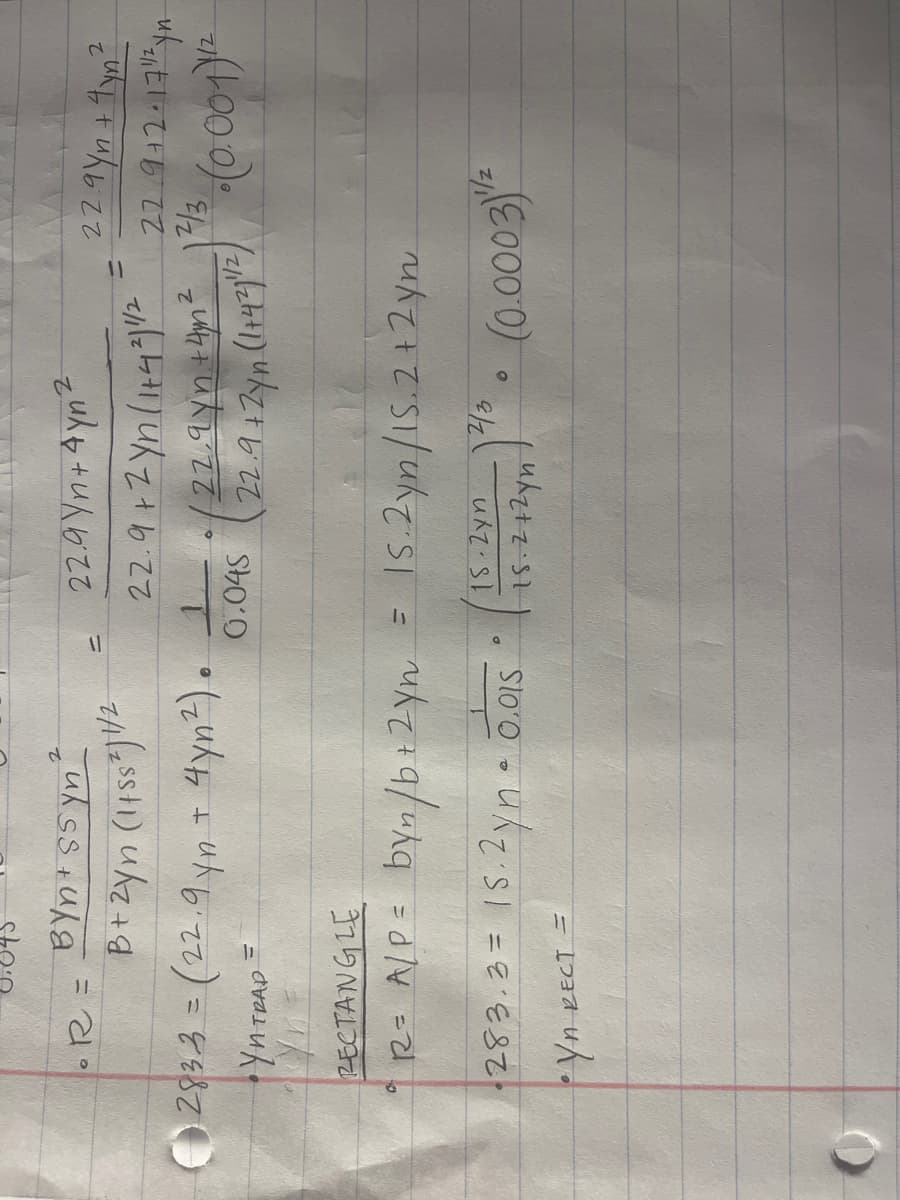 0.045
• R = BYn + ssyn² / B + 2yn (1+ss²)^1/2 = 22.9Yn + 4yn² / 22.9 + 2yn(1+4²)^1/2 = 22.9Yn + 4yn² / 22.9 + 2·17^1/2 yn
283.3 = (22.9yn + 4yn²) • 1/0.045 • (22.9yn + 4yn² / 22.9 + 2yn(1+4²)^1/2)^2/3 • (0.001)^1/2
• Yn TRAP =
Yn =
RECTANGLE
• R = A/P = byn/b+2yn = 15.2yn/15.2+2yn
• 283.3 = 15.2yn • 1/0.015 • (15.2yn / 15.2+2yn)^2/3 • (0.0003)^1/2
• Yn RECT =